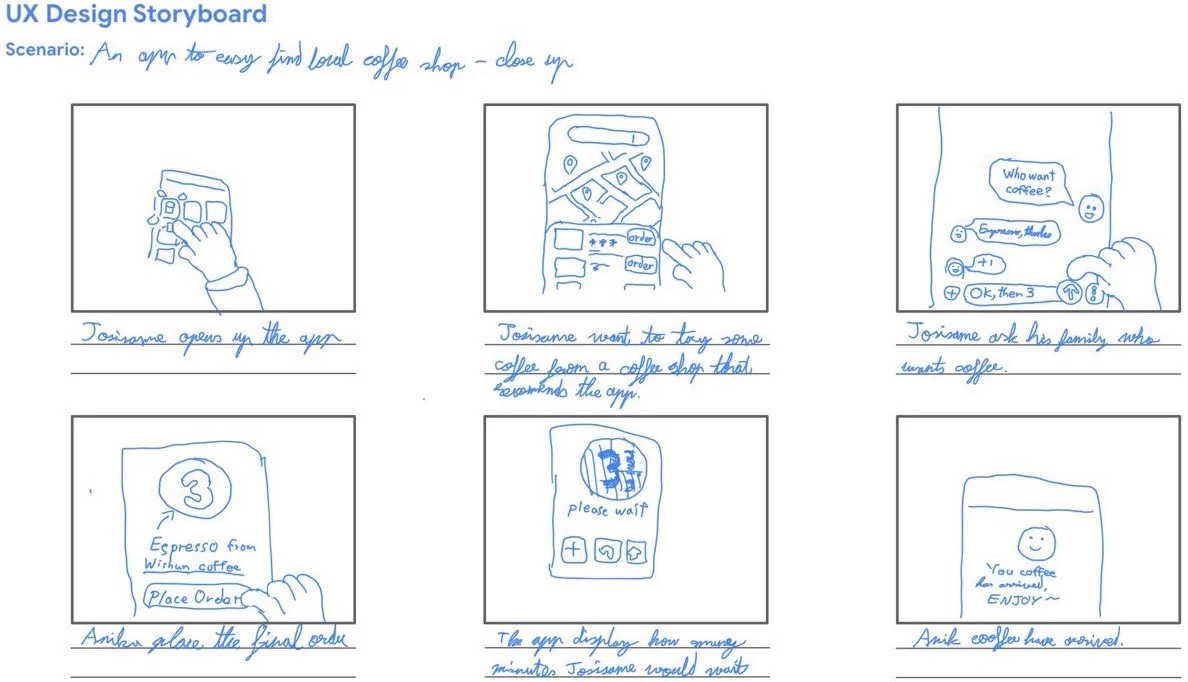 UX Design Storyboard
Scenario: An app to easy find local coffee shop - close up
Josisame opens up the app
order
order
Josisame want to try some
coffee from a coffee shop that
recomends the app.
Who want
coffee?
Espresso, thanks
+1
OK, then 3
Josisame ask his family who
wants coffee.
3
Espresso from
Wishun coffee
Place Order
Anika place the final order
3 min
please wait
The app display how many
minutes Josisame would wait
You coffee
has arrived,
ENJOY~
Anik cooffee have arrived.